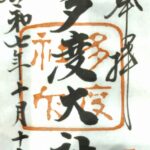 奉拝
多度大社
多度
祉印
令和七年十月十